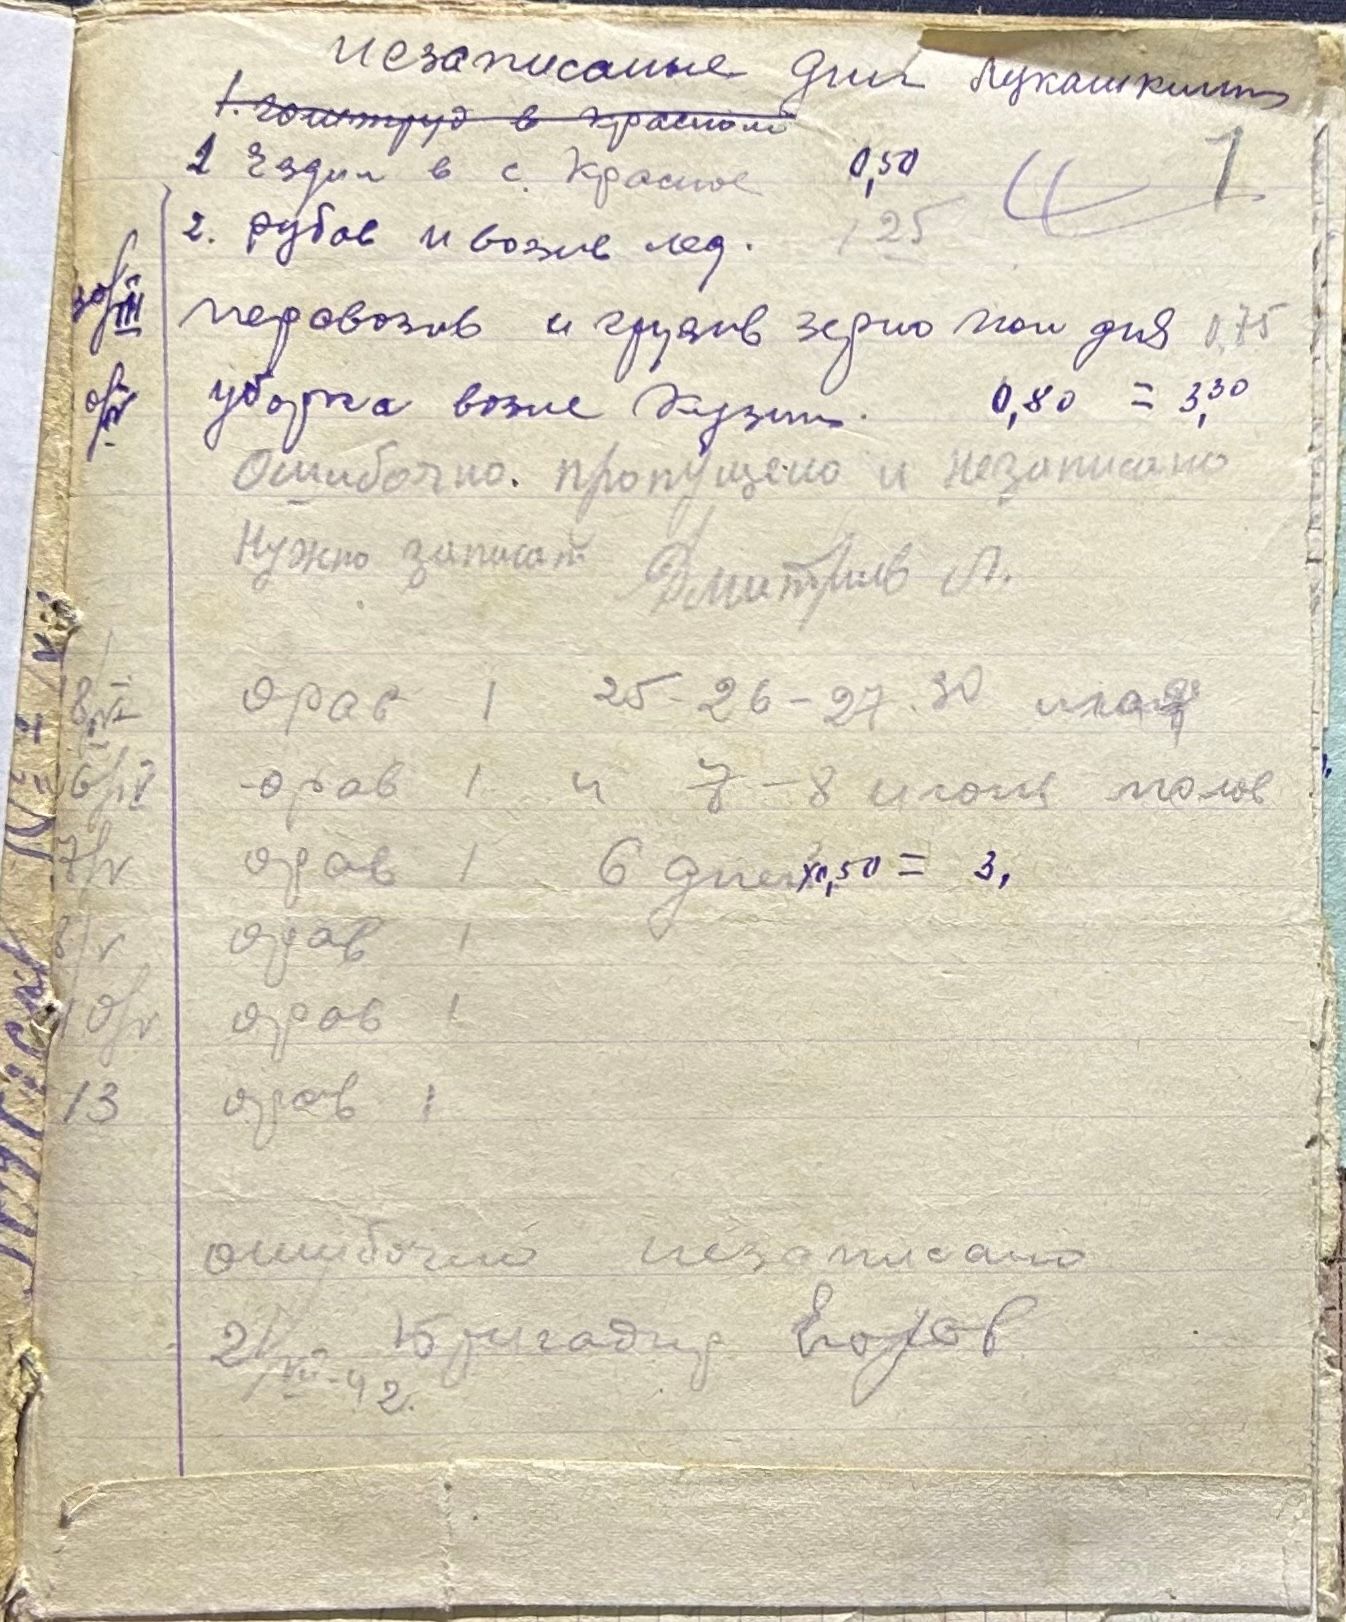 незаписаные дни Лукашкин
1. в красном
1 Ездил в с. Красное 0,50
1
2. рубав и возив лед. 1,25
30/III перевозив и грузив зерно пол дня 0,75
уборка возле кузн. 0,80 = 3,30
Ошибочно. пропущено и незаписано
Нужно записат Дмитриев А.
8/VI орав 1 25-26-27.30
6/IV орав 1 и 7-8 июня полов
7/V орав 1 6 дней х0,50 = 3,
8/V орав 1
10/V орав 1
13 орав 1
ошибочно незаписано
21/VII-42. Бригадир